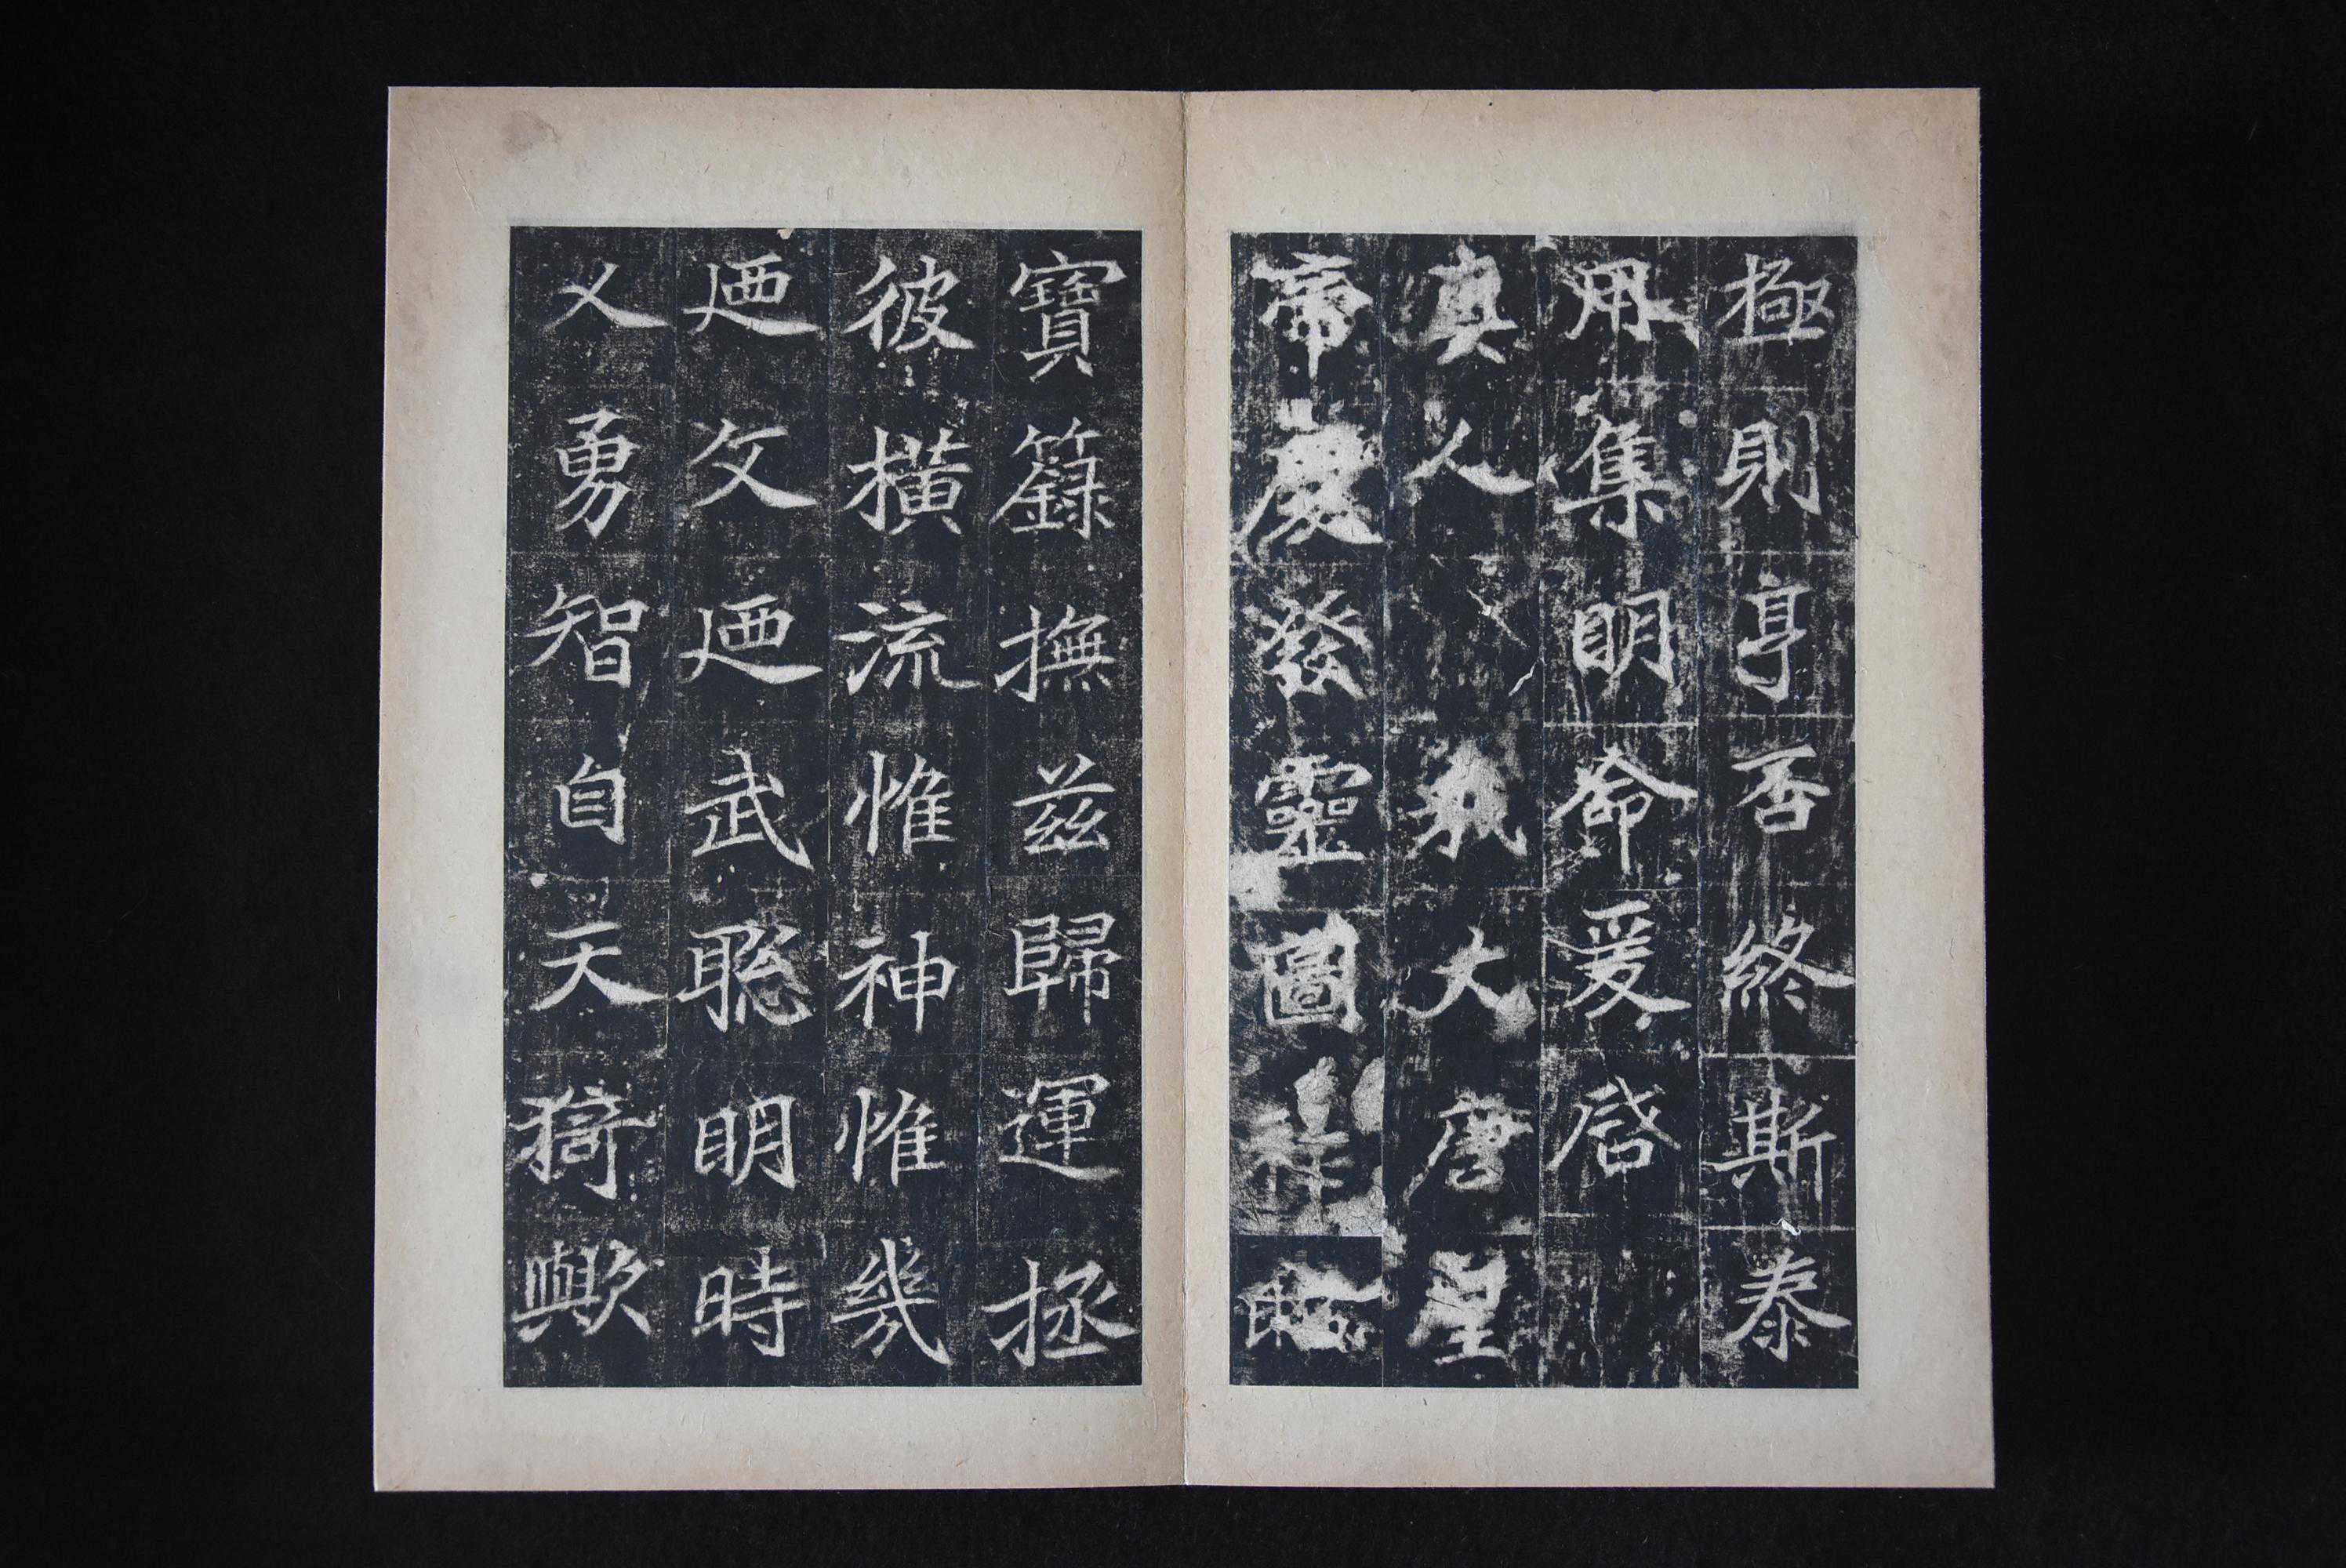 極則亨否終斯泰
用集明命爰啓
真人 我大唐皇
帝慶發靈圖祥昭
寶籙撫兹歸運拯
彼橫流惟神惟幾
迺文迺武聦明時
乂勇智自天猗歟